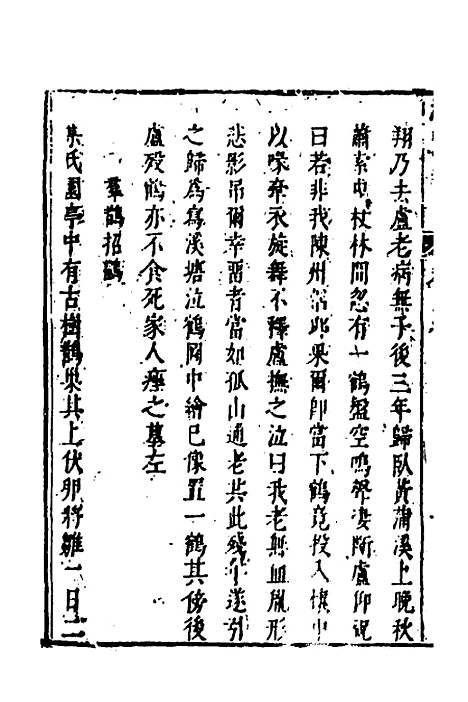 翔乃去盧老病無子後三年歸臥黃蒲溪上晚秋
蕭索曳杖林間忽有一鶴盤空鳴聲淒斷盧仰祝
曰若非我陳州侶耶果爾卽當下鶴竟投入懷中
以喙牽衣旋舞不釋盧撫之泣曰我老無血胤形
悲影吊爾幸留者當如孤山逋老共此殘年遂引
之歸為寫溪塘泣鶴圖中繪已像置一鶴其傍後
盧歿鶴亦不食死家人瘞之墓左
羣鶴招鸛
某氏園亭中有古樹鵲巢其上伏卵將雛一日二